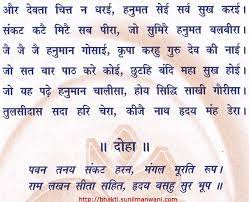 और देवता चित्त न धरई, हनुमत सेई सर्व सुख करई
संकट कटे मिटे सब पीरा, जो सुमिरै हनुमत बलबीरा।
जै जै जै हनुमान गोसाई, कृपा करहु गुरु देव की नाई
जो सत बार पाठ करे कोई, छुटहि बंदि महा सुख होई।
जो यह पढ़े हनुमान चालीसा, होय सिद्धि साखी गौरीसा
तुलसीदास सदा हरि चेरा, कीजै नाथ हृदय मंह डेरा।
॥ दोहा ॥
पवन तनय संकट हरन, मंगल मूरति रूप।
राम लखन सीता सहित, हृदय बसहु सुर भूप ॥
http://bhakti.sunilmanwani.com/